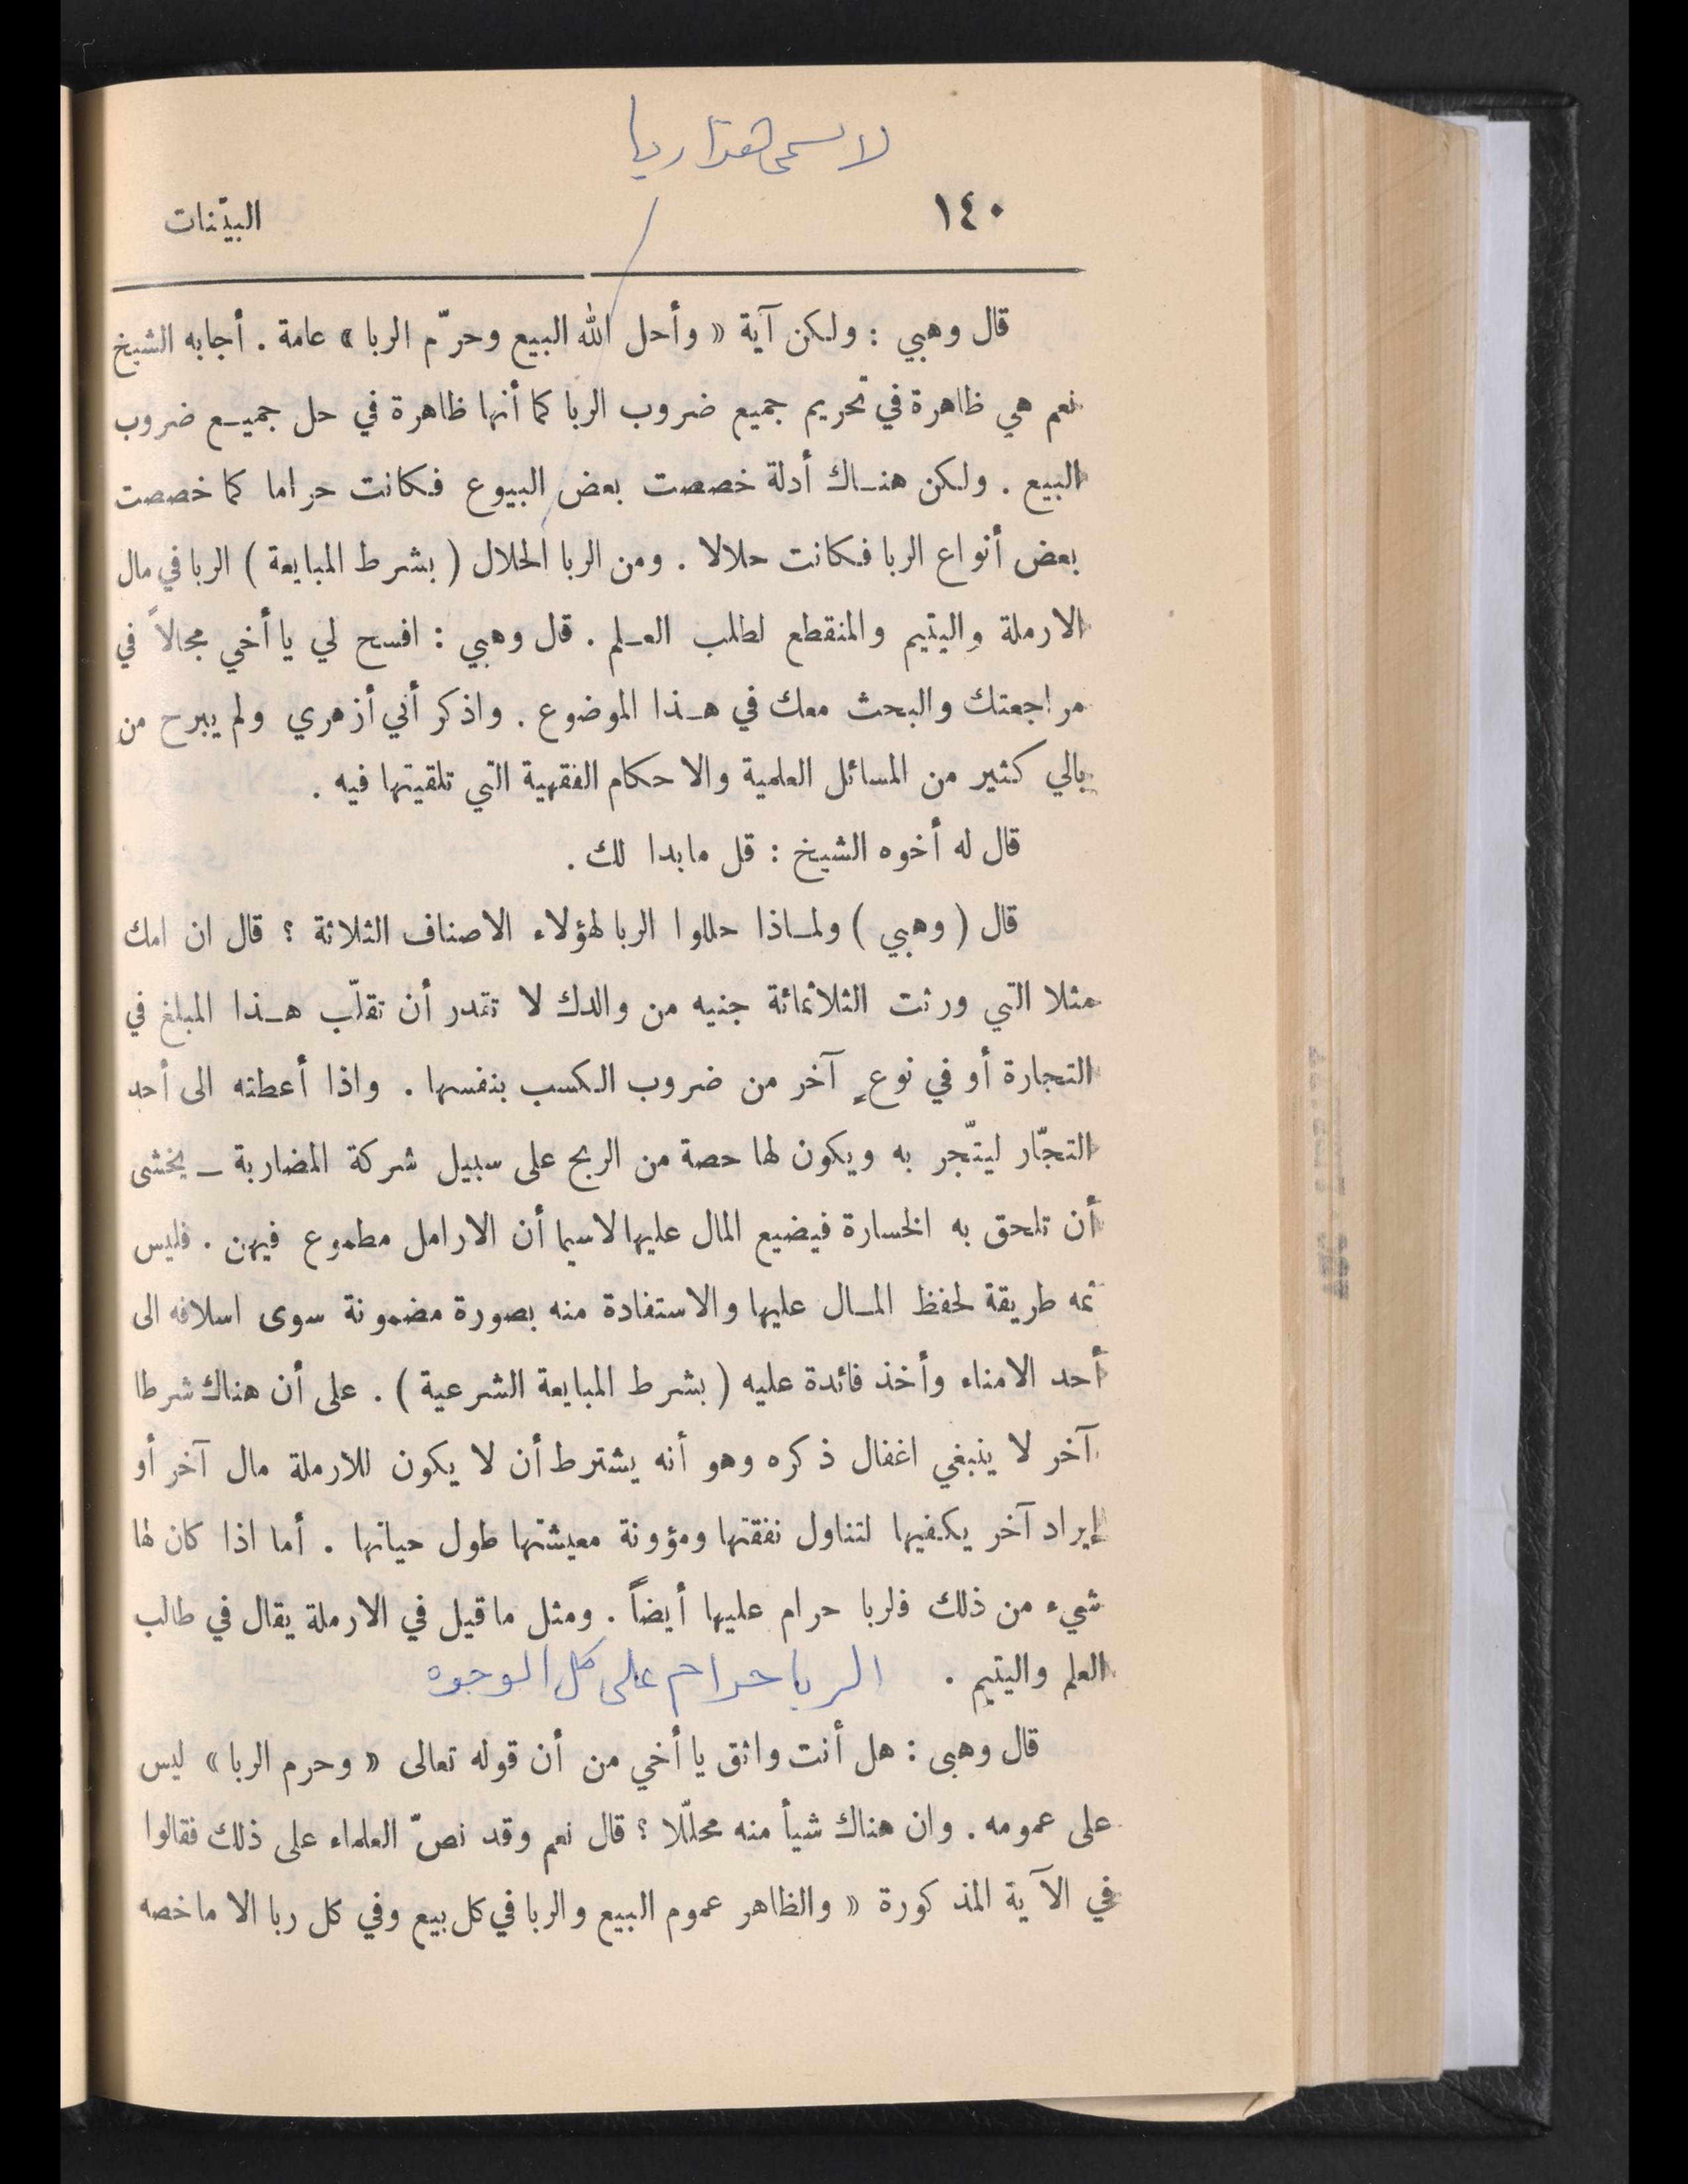 لا يسمى هذا ربا
١٤٠
البيّنات
قال وهبي : ولكن آية « وأحل الله البيع وحرّم الربا » عامة . أجابه الشيخ
نعم هي ظاهرة في تحريم جميع ضروب الربا كما أنها ظاهرة في حل جميع ضروب
البيع . ولكن هناك أدلة خصصت بعض البيوع فكانت حراما كما خصصت
بعض أنواع الربا فكانت حلالا . ومن الربا الحلال ( بشرط المبايعة ) الربا في مال
الارملة واليتيم والمنقطع لطلب العلم . قال وهبي : افسح لي يا أخي مجالاً في
مراجعتك والبحث معك في هذا الموضوع . واذكر أني أزهري ولم يبرح من
بالي كثير من المسائل العلمية والاحكام الفقهية التي تلقيتها فيه .
قال له أخوه الشيخ : قل مابدا لك .
قال ( وهبي ) ولماذا حللوا الربا لهؤلاء الاصناف الثلاثة ؟ قال ان امك
مثلا التي ورثت الثلاثمائة جنيه من والدك لا تقدر أن تقلّب هذا المبلغ في
التجارة أو في نوعٍ آخر من ضروب الكسب بنفسها . واذا أعطته الى أحد
التجّار ليتّجر به ويكون لها حصة من الربح على سبيل شركة المضاربة — يخشى
أن تلحق به الخسارة فيضيع المال عليها لاسيما أن الارامل مطموع فيهن . فليس
ثمه طريقة لحفظ المال عليها والاستفادة منه بصورة مضمونة سوى اسلافه الى
أحد الامناء وأخذ فائدة عليه ( بشرط المبايعة الشرعية ) . على أن هناك شرطا
آخر لا ينبغي اغفال ذكره وهو أنه يشترط أن لا يكون للارملة مال آخر أو
إيراد آخر يكفيها لتناول نفقتها ومؤونة معيشتها طول حياتها . أما اذا كان لها
شيء من ذلك فلربا حرام عليها أيضاً . ومثل ماقيل في الارملة يقال في طالب
العلم واليتيم . الربا حرام على كل الوجوه
قال وهبى : هل أنت واثق يا أخي من أن قوله تعالى « وحرم الربا » ليس
على عمومه . وان هناك شيأ منه محلّلا ؟ قال نعم وقد نصّ العلماء على ذلك فقالوا
في الآية المذكورة « والظاهر عموم البيع والربا في كل بيع وفي كل ربا الا ماخصه